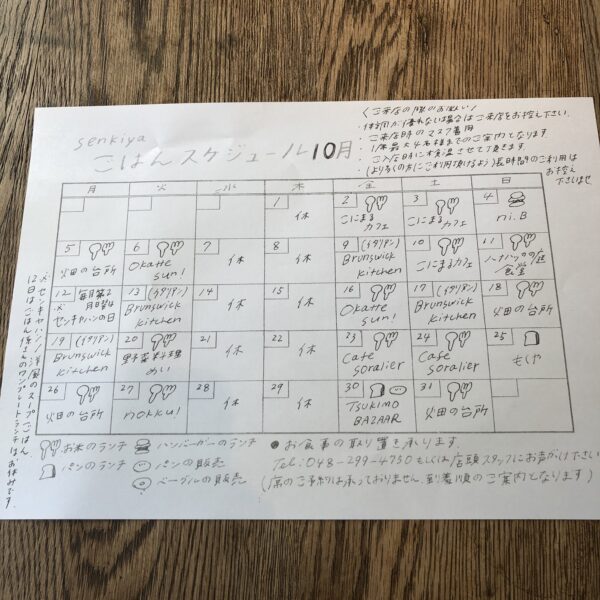 senkiya
ごはんスケジュール10月
〈ご来店の際のお願い〉
・体調が優れない場合はご来店をお控え下さい.
・ご来店時のマスク着用
・1作品大4名様までのご案内となります.
・ご入店時に検温させて頂きます.
(より多くの方にご利用頂けるよう)長時間のご利用は
お控え
下さいませ
月 火 水 木 金 土 日
1 休
2 こにまるカフェ
3 こにまるカフェ
4 nii.B
5 畑の台所
6 Okatte sun!
7 休
8 休
9 (イタリアン) Brunswick kitchen
10 こにまるカフェ
11 食堂
12 毎月第2月曜は センキヤバンの日
13 (イタリアン) Brunswick kitchen
14 休
15 休
16 Okatte sun!
17 (イタリアン) Brunswick kitchen
18 畑の台所
19 (イタリアン) Brunswick kitchen
20 野菜料理 めい
21 休
22 休
23 Cafe soralier
24 Cafe soralier
25 もくや
26 畑の台所
27 nokku!
28 休
29 休
30 TSUKIMO BAZAAR
31 畑の台所
お米のランチ
ハンバーガーのランチ
パンのランチ
パンの販売
ベーグルの販売
●お食事の取り置き承ります.
Tel:048-299-4750 もしくは店頭スタッフにお声がけ下さい
(席のご予約は承っておりません.到着順のご案内となります)
12日はごはん係さんのワンプレートランチはお休みです.